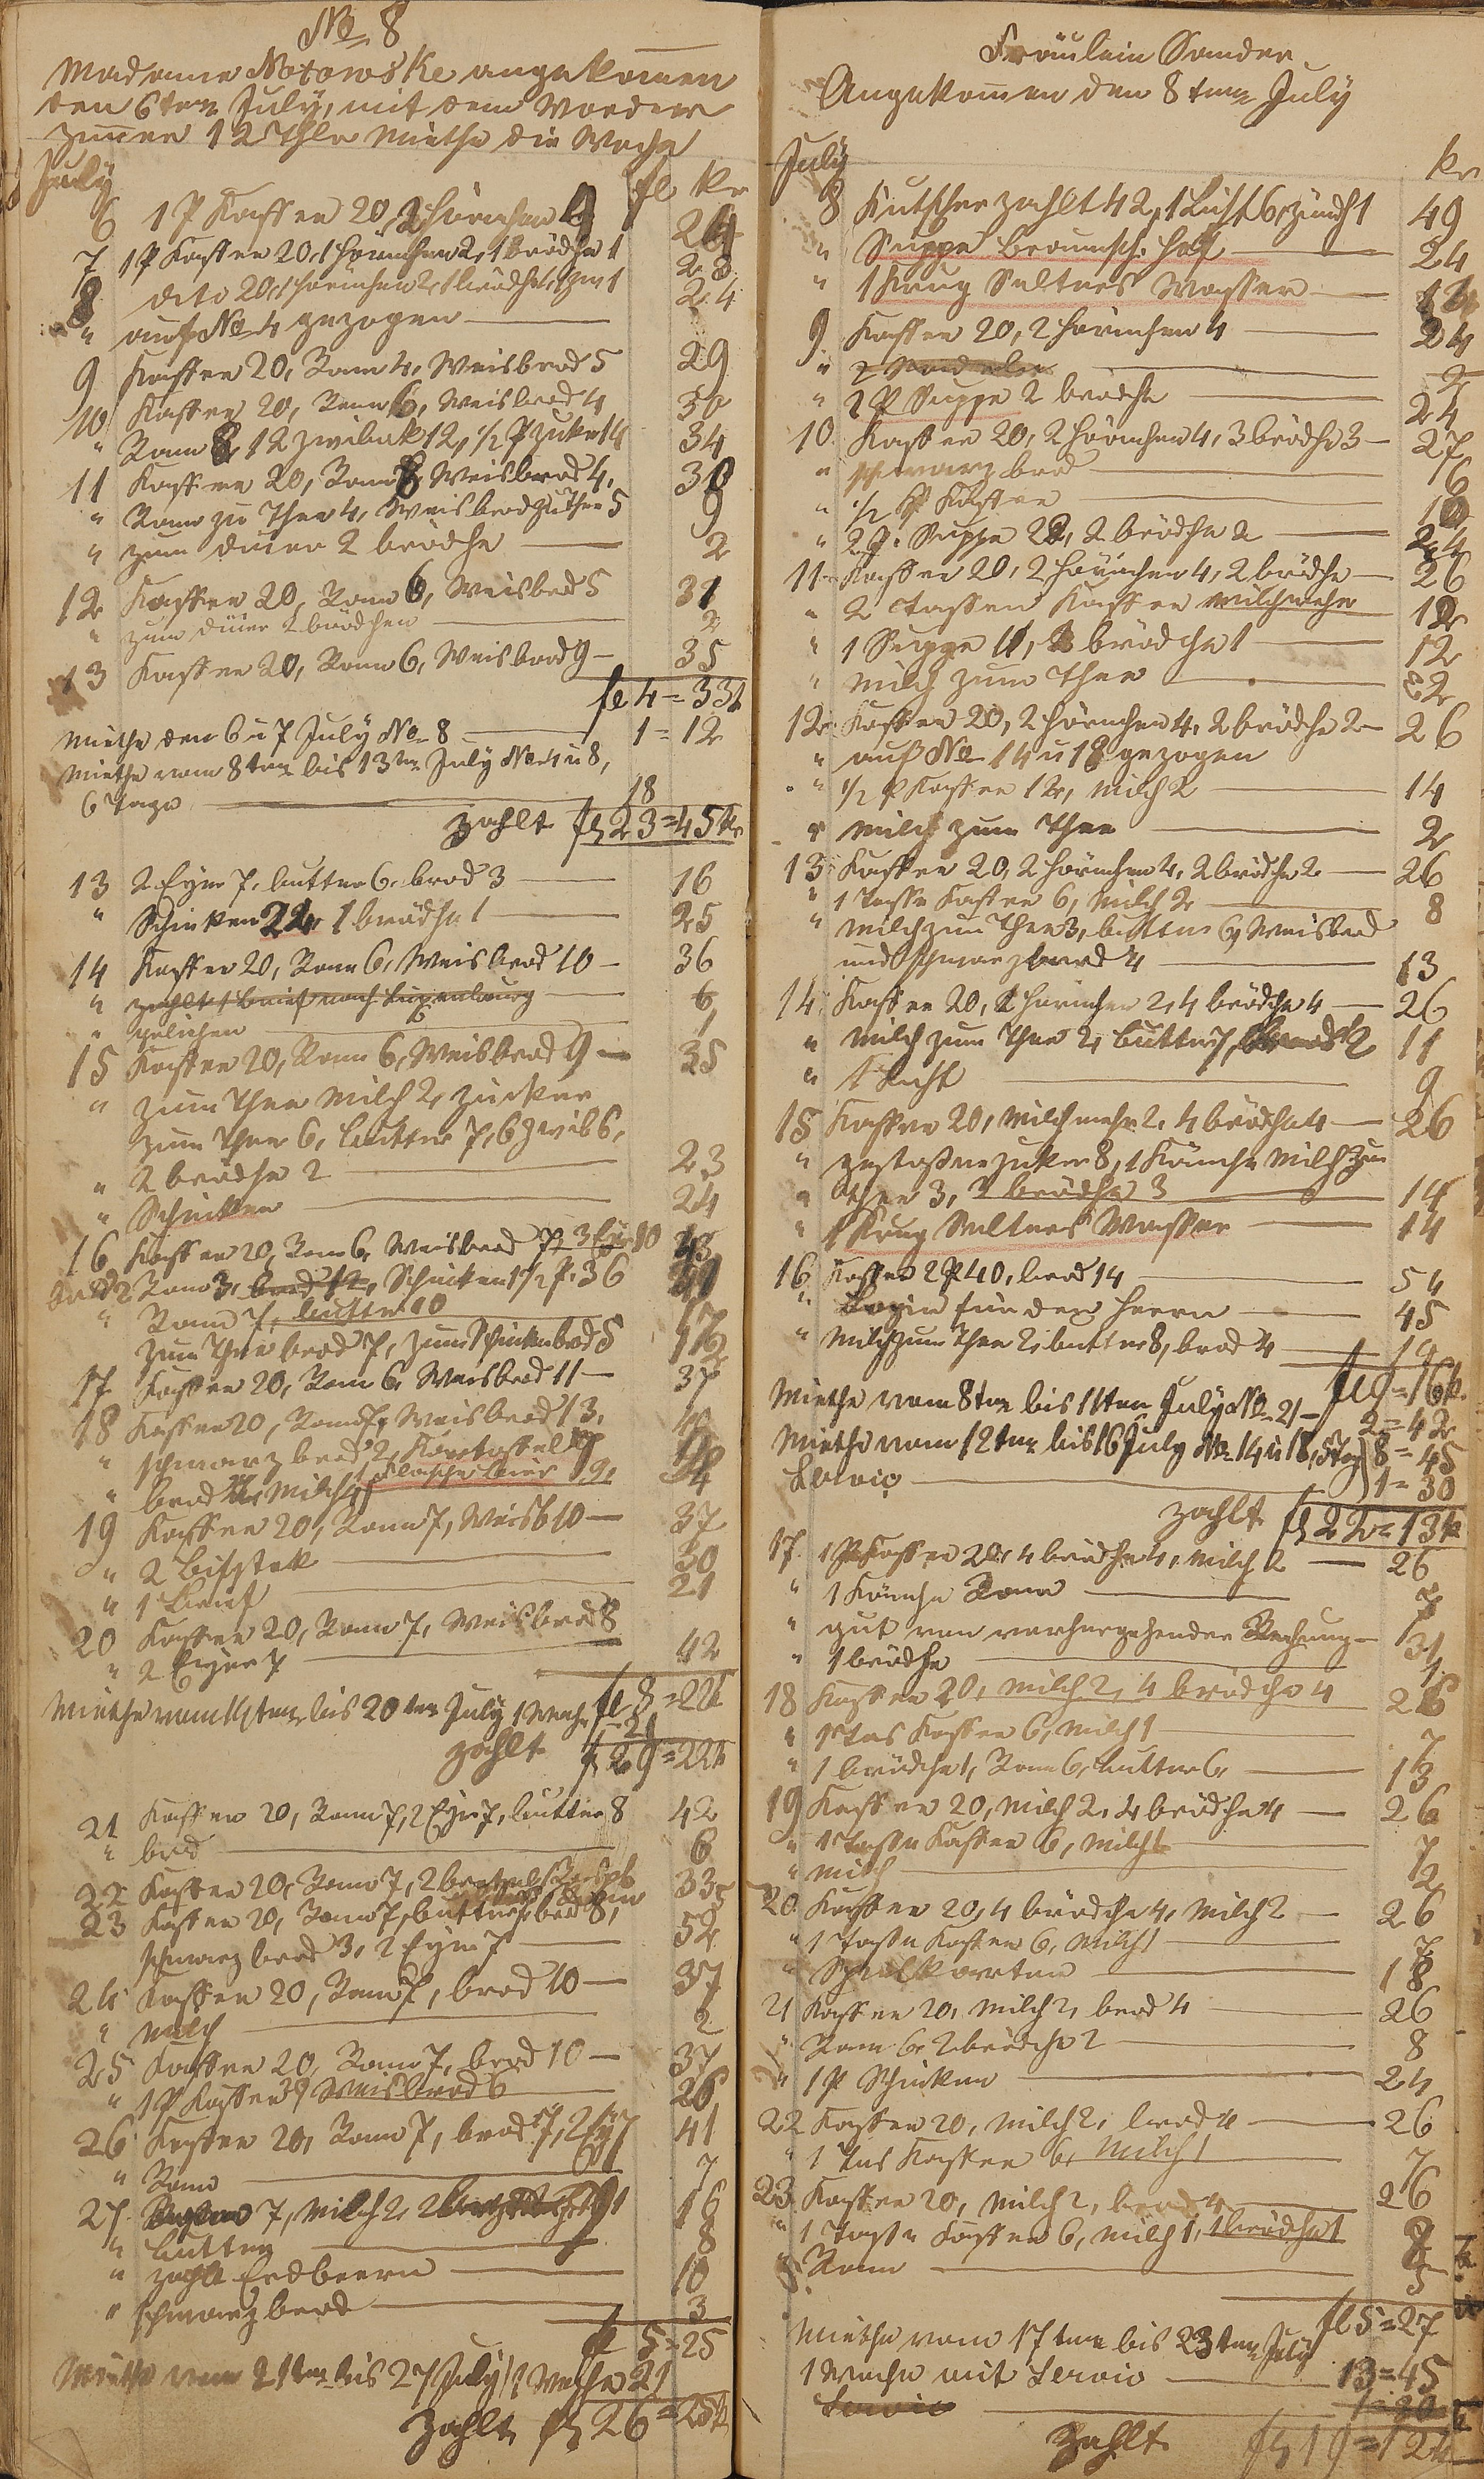 No 8
Madame Notowske angekom̅en
den 6ten July, mit dem Vorder
zim̅er 12 Thlr Miethe die Woche
July fl kr
6 1 P Kaffee 20, 2 hörnchen 4 24
7 1 P Kaffee 20, 1 hörnchen 2, 1 brödche 1 23
8 dito 20, 1 hörnchen 2, 1 brödche 1, 24
" auf No 4 gezogen
9 Kaffee 20, Ram 4, Weisbrod 5 29
10 Kaffee 20, Ram 6, Weisbrod 4 30
" Ram 8, 12 Zwibak 12, 1/2 P Zuker 14 34
11 Kaffee 20, Ram 6, Weisbrod 4, 30
" Ram zu Thee 4, Weisbrod zu Thee 5 9
" zum diner 2 brödche 2
12 Kaffee 20, Ram 6, Weisbrod 5 31
" zum diner 2 brödchen 2
13 Kaffee 20, Ram 6, Weisbrod 9 35
fl 4 = 33k
Miethe den 6 u 7 July No 8 1 = 12
Miethe vom 8ten bis 13ten July No 4 u 8,
6 Tage 18
zahlt fl 23 = 45 kr
13 2 Eyer 7, butter 6, brod 3 16
" Schinken 24, 1 brödche 1 25
14 Kaffee 20, Ram 6, Weisbrod 10 36
" zahlt 1 brief nach Luxenburg 6
" 1
15 Kaffee 20, Ram 6, Weisbrod 9 35
" zum Thee Milch 2, Zucker
zum Thee 6, butter 7, 6 zwib 6,
" 2 brödche 2 23
" Schinken 24
16 Kaffee 20, Ram 6, Weisbrod 7, 3 Eyer 10 43
brod 2 Ram 3, Schinken 1 1/2 P. 36
" Ram 7, butter 10 17
zum Thee brod 7, zum Schinken brod 5 12
17 Kaffee 20, Ram 6, Weisbrod 11 37
18 Kaffee 20, Ram 7, Weisbrod 13, 40
" schwarz brod 2, Kartoffel
" brod Milch 1 flasche bier 9,
19 Kaffee 20, Ram 7, Weisb 10 37
" 2 Bifstek 30
" 1 Brief 21
20 Kaffee 20, Ram 7, Weisbrod 8
" 2 Eyer 7 42
Miethe vom 14ten bis 20ten July 1 Woche fl 8 = 22k
21
zahlt fl 29 = 22k
21 Kaffee 20, Ram 7, 2 Eyer 7, butter 8 42
" brod 6
22 Kaffee 20, Ram 7, 33
23 Kaffee 20, Ram 7, butter brod 8,
schwarz brod 3, 2 Eyer 7 52
24 Kaffee 20, Ram 7, brod 10 37
" Milch 2
25 Kaffee 20, Ram 7, brod 10 37
" 1 P Kaffee Weisbrod 6 26
26 Kaffee 20, Ram 7, brod 7, 2 Ey 7 41
" Ram 7
27 7, Milch 2, 16
" butter 8
" zahlt Erdbeern 10
" schwarz brod 3
fl 5 = 25
Miethe vom 21ten bis 27 July 1 Woche 21
zahlt fl 26 = 25k
Fräulein Sander
Angekom̅en den 8ten July
July kr
8 Kutscher zahlt 42, 1 Licht 6, zündh 1 49
" Suppe braunsch: hof 24
" 1 Krug Selters Wasser 14
9 Kaffee 20, 2 hörnchen 4 24
" 2 2
" 2 P Suppe 2 brödche 24
10 Kaffee 20, 2 hörnchen 4, 3 brödche 3 27
" schwarz brod 6
" 1/2 P Kaffee 10
" 2 P. Suppe 22, 2 brödche 2 24
11 Kaffee 20, 2 hörnchen 4, 2 brödche 26
" 2 Tassen Kaffee milch mehr 12
" 1 Suppe 11, brödche 1 12
" Milch zum Thee 2
12 Kaffee 20, 2 hörnchen 4, 2 brödche 2 26
" auf No 14 u 18 gezogen
" 1/2 P Kaffee 12, Milch 2 14
" Milch zum Thee 2
13 Kaffee 20, 2 hörnchen 4, 2 brödche 2 26
" 1 Tasse Kaffee 6, Milch 2 8
" Milch zum Thee 3, butter 6, Weisbrod
und schwarzbrod 4 13
14 Kaffee 20, 1 hörnchen 2, 4 brödche 4 26
" Milch zum Thee 2, butter 7, 2 11
" 1 Licht 9
15 Kaffee 20, Milch mehr 2, 4 brödche 4 26
" gestoßne zuker 8, 1 Känche Milch zum
" Thee 3, 3 brödche 3 14
" 1 Krug Selters Wasser 14
16 Kaffee 2 P 40, brod 14 54
" Logie für den Herrn 45
" Milch zum Thee 2, butter 8, brod 4 14
fl 9 = 16k
Miethe vom 8ten bis 11ten July No 21 2 = 42
Miethe vom 12ten bis 16 July No 14 u 18, 5 Tag 8 = 45
Servic 1 = 30
zahlt fl 22 = 13k
17 1 P Kaffee 20, 4 brödche 4, Milch 2 26
" 1 Känche Ram 7
" gut von vorhergehender Rechnung 31
" 1 brödche 1
18 Kaffee 20, Milch 2, 4 brödche 4 26
" 1 Tas Kaffee 6, Milch 1 7
" 1 brödche 1, Ram 6, butter 6, 13
19 Kaffee 20, Milch 2, 4 brödche 4 26
" 1 Tasse Kaffee 6, Milch 1 7
" Milch 2
20 Kaffee 20, 4 brödche 4, Milch 2 26
" 1 Tasse Kaffee 6, Milch 1 7
" Spielkarten 18
21 Kaffee 20, Milch 2, brod 4 26
" Ram 6, 2 brödche 2 8
" 1 P Schinken 24
22 Kaffee 20, Milch 2, brod 4 26
" 1 Tas Kaffee 6, Milch 1 7
23 Kaffee 20, Milch 2, brod 4 26
" 1 Tasse Kaffee 6, Milch 1, 1 brödche 1 8
" Ram 5
fl 5 = 27
Miethe vom 17ten bis 23ten July
1 Woche mit Servic 13 = 45
Servic 1 = 30
zahlt fl 19 = 12k